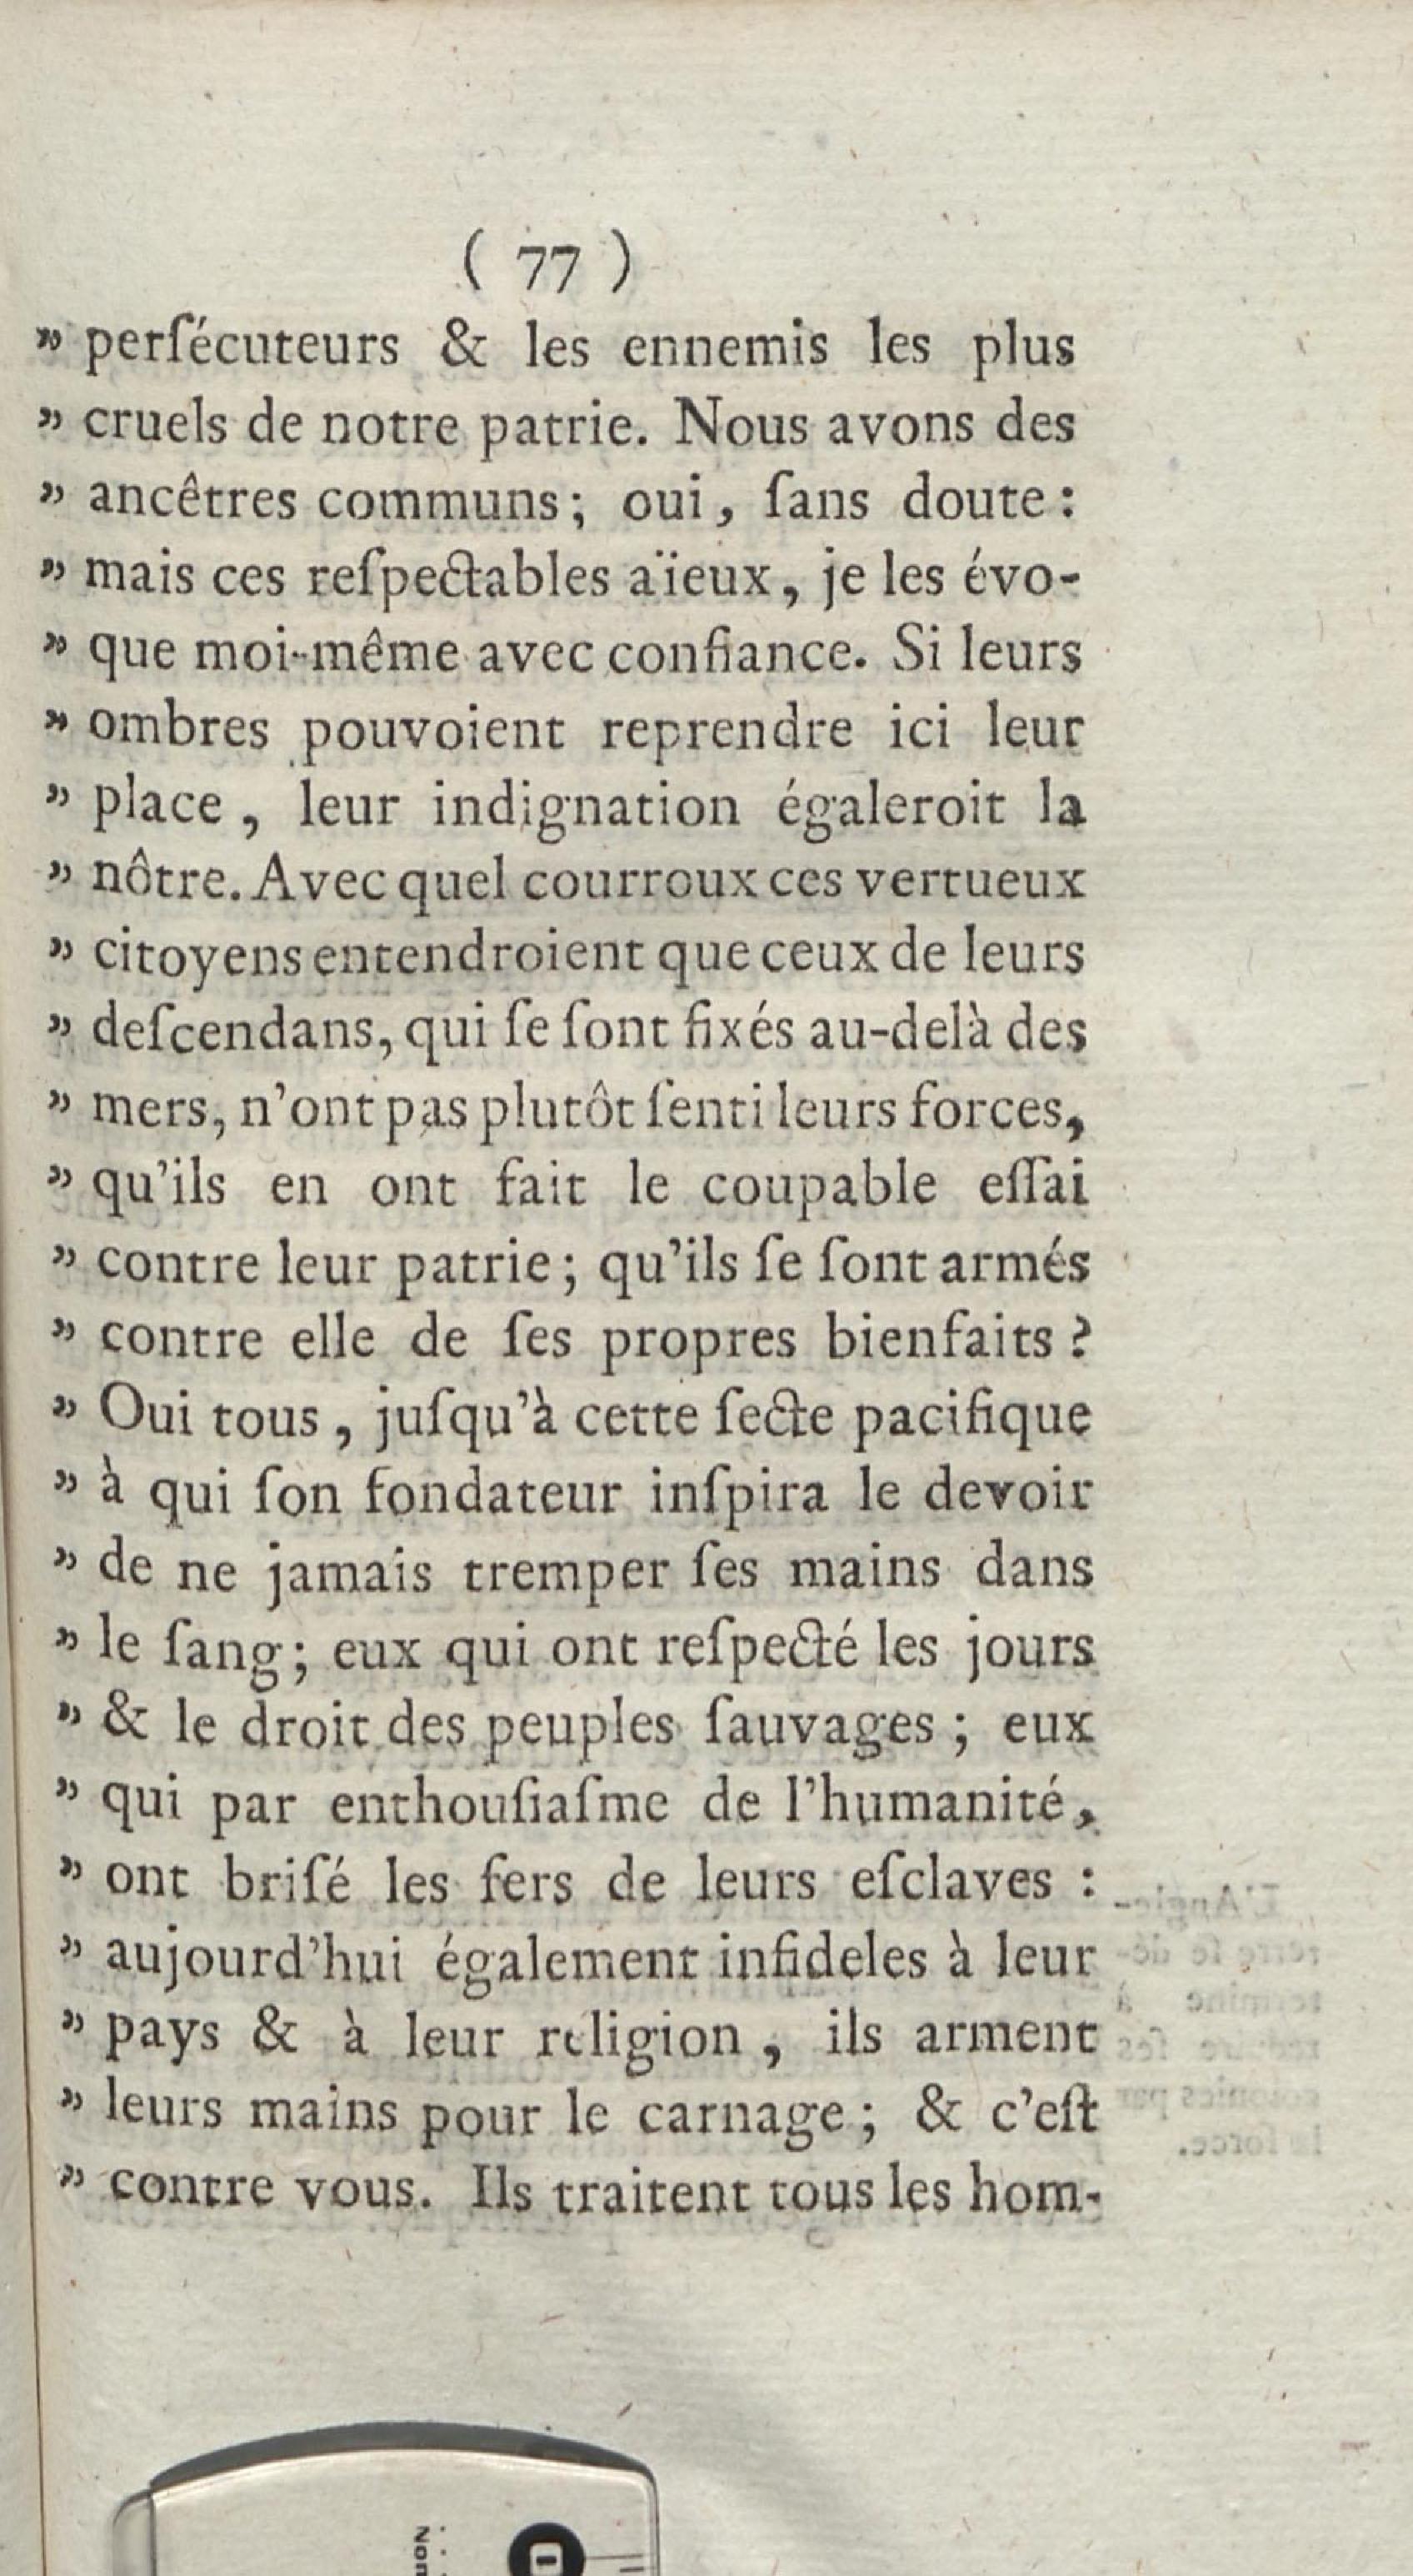 ( 77 )
» perſécuteurs & les ennemis les plus
» cruels de notre patrie. Nous avons des
» ancêtres communs; oui, ſans doute:
» mais ces reſpectables aïeux, je les évo-
» que moi-même avec confiance. Si leurs
» ombres pouvoient reprendre ici leur
» place, leur indignation égaleroit la
» nôtre. Avec quel courroux ces vertueux
» citoyens entendroient que ceux de leurs
» deſcendans, qui ſe ſont fixés au-delà des
» mers, n'ont pas plutôt ſenti leurs forces,
» qu'ils en ont fait le coupable eſſai
» contre leur patrie; qu'ils ſe ſont armés
» contre elle de ſes propres bienfaits?
» Oui tous, juſqu'à cette ſecte pacifique
» à qui ſon fondateur inſpira le devoir
» de ne jamais tremper ſes mains dans
» le ſang; eux qui ont reſpecté les jours
» & le droit des peuples ſauvages; eux
» qui par enthouſiaſme de l'humanité,
» ont briſé les fers de leurs eſclaves:
» aujourd'hui également infideles à leur
» pays & à leur religion, ils arment
» leurs mains pour le carnage; & c'eſt
» contre vous. Ils traitent tous les hom-